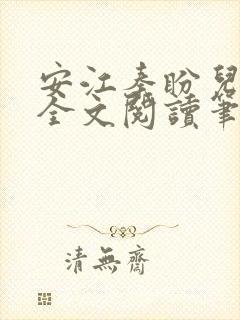 安江秦盼兒
全文閱讀筆
清無齋